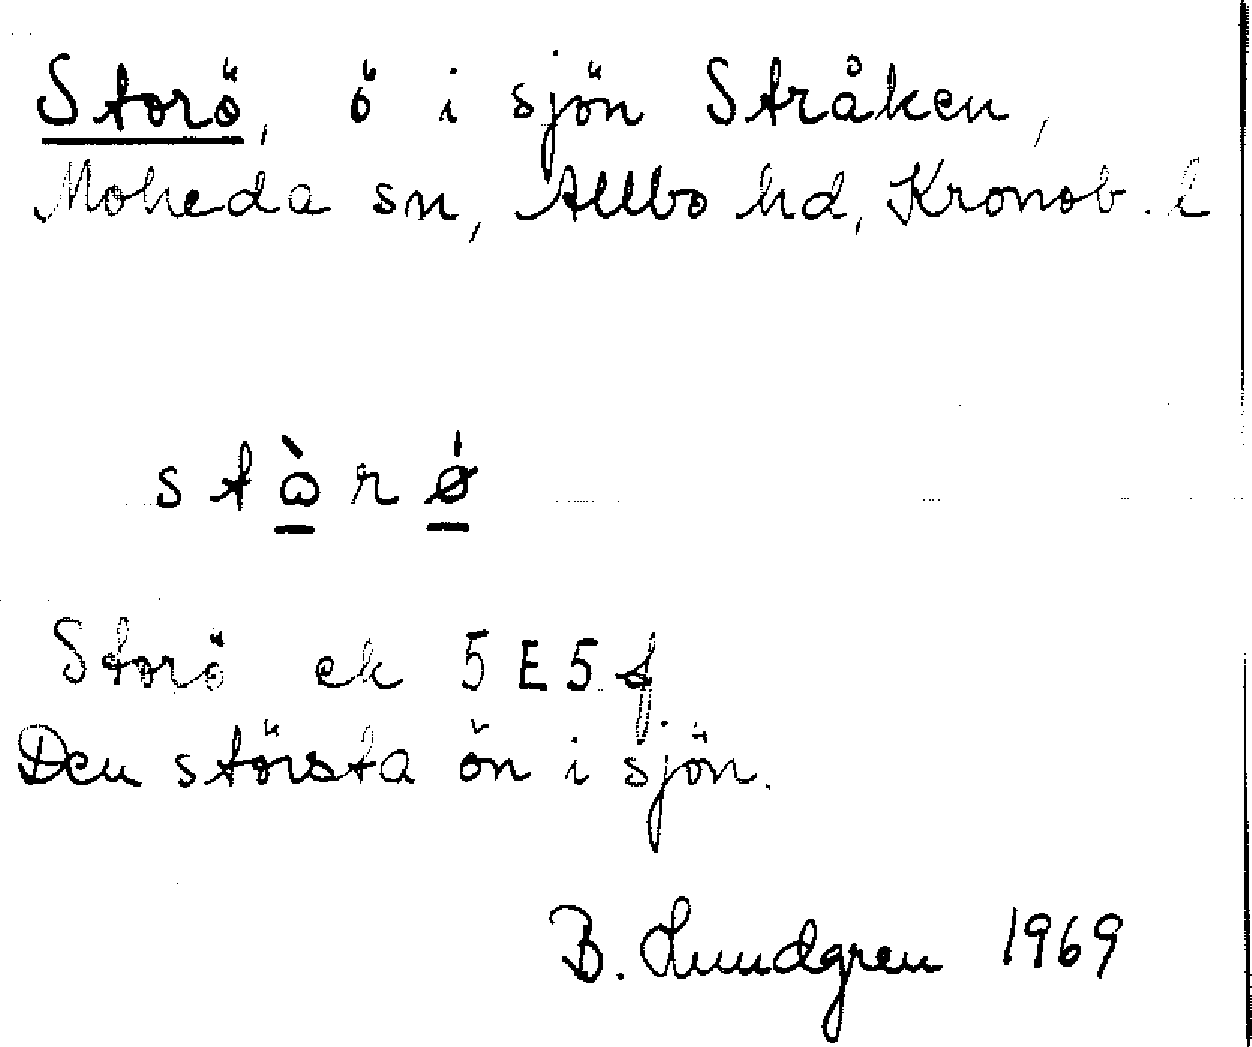 Storö, ö i sjön Stråken,
Moheda sn, Allbo hd, Kronob. l
stὼrǿ
Storö ek 5E5f
Den största ön i sjön.
B. Lundgren 1969